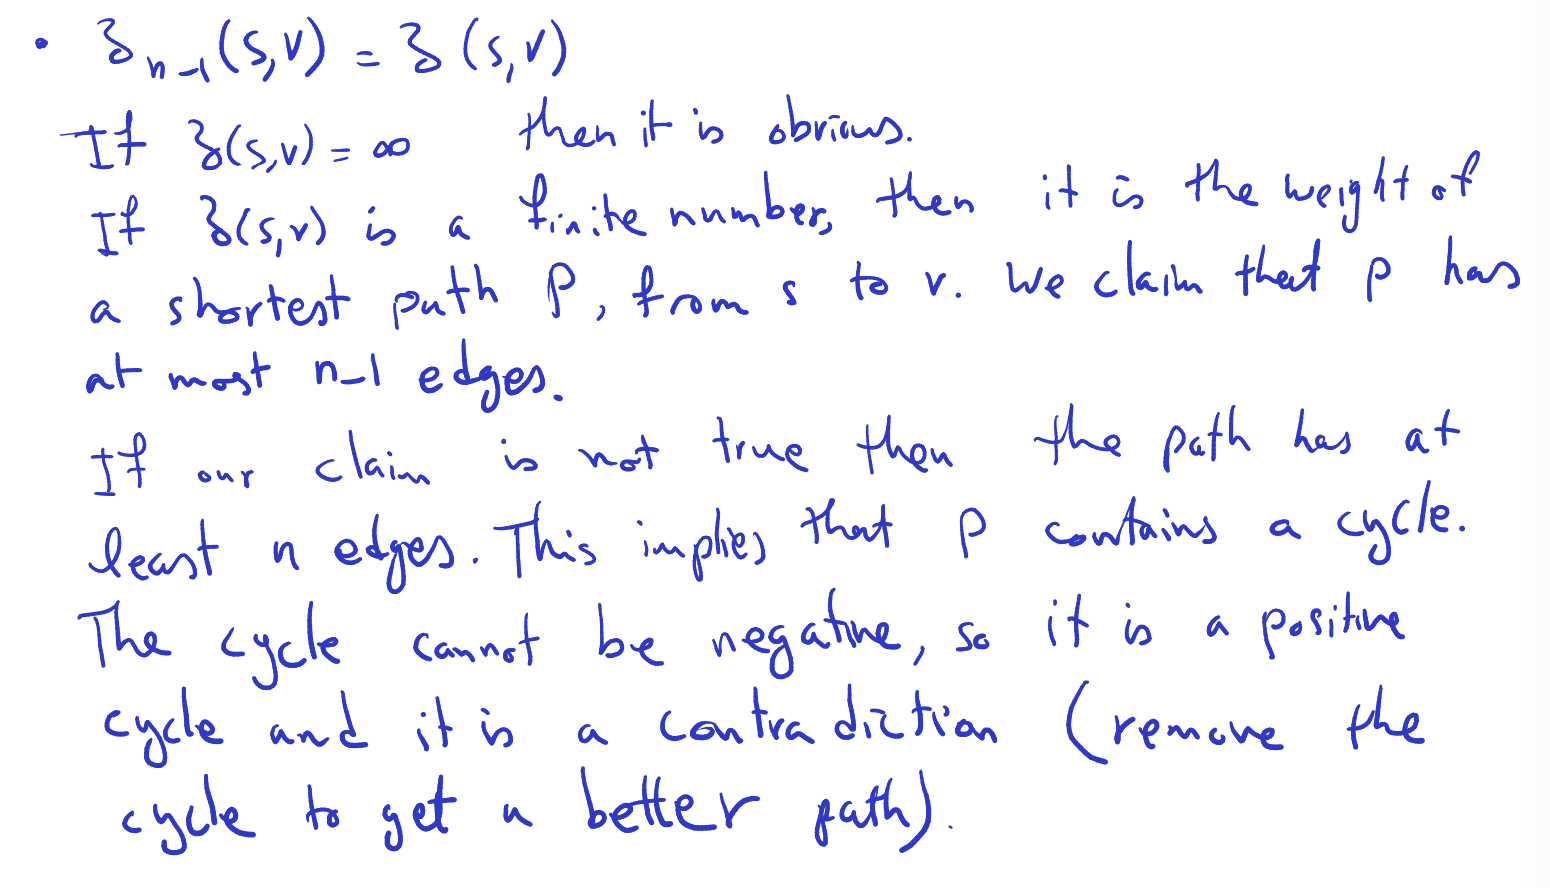 • δₙ₋₁(s,v) = δ(s,v)
If δ(s,v) = ∞ then it is obvious.
If δ(s,v) is a finite number, then it is the weight of
a shortest path P, from s to v. We claim that p has
at most n-1 edges.
If our claim is not true then the path has at
least n edges. This implies that p contains a cycle.
The cycle cannot be negative, so it is a positive
cycle and it is a contradiction (remove the
cycle to get a better path).